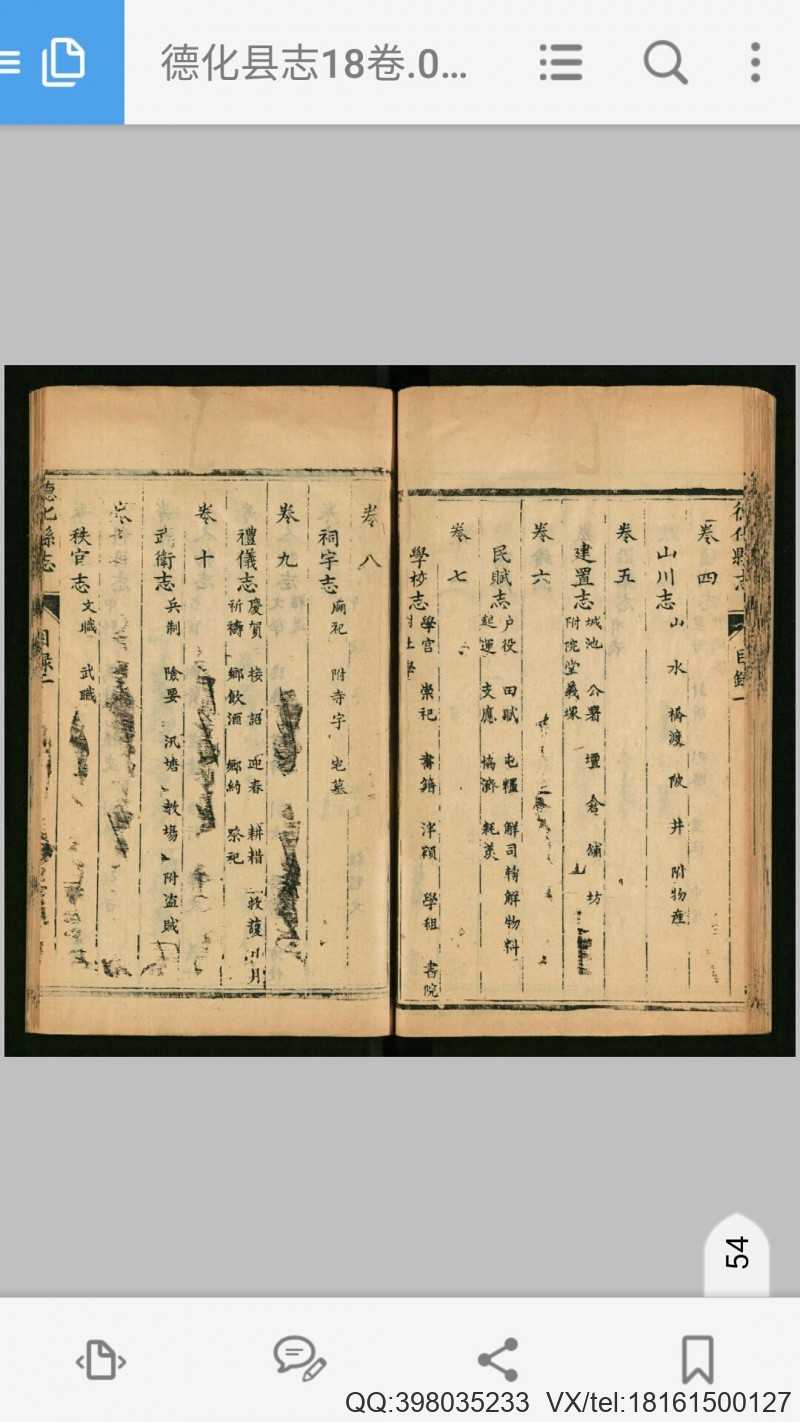 德化县志18卷.0...
德化縣志
目錄一
卷四
山川志
山 水 橋渡 陂 井 附物産
卷五
建置志
城池 公署 壇 倉 舖 坊
附院堂義塚
卷六
民賦志
户役 田賦 屯糧 解司轉解物料
起運 支應 協濟 耗羨
卷七
學校志
學宮 崇祀 書籍 泮額 學租 書院
卷八
祠宇志
廟祀 附寺宇 宅墓
卷九
禮儀志
慶賀 接詔 迎春 耕耤 救護 月
祈禱 鄉飲酒 鄉約 祭祀
卷十
武衛志
兵制 險要 汛塘 教場 附盗賊
秩官志
文職 武職
德化縣志
目録二
54
QQ:398035233 VX/tel:18161500127